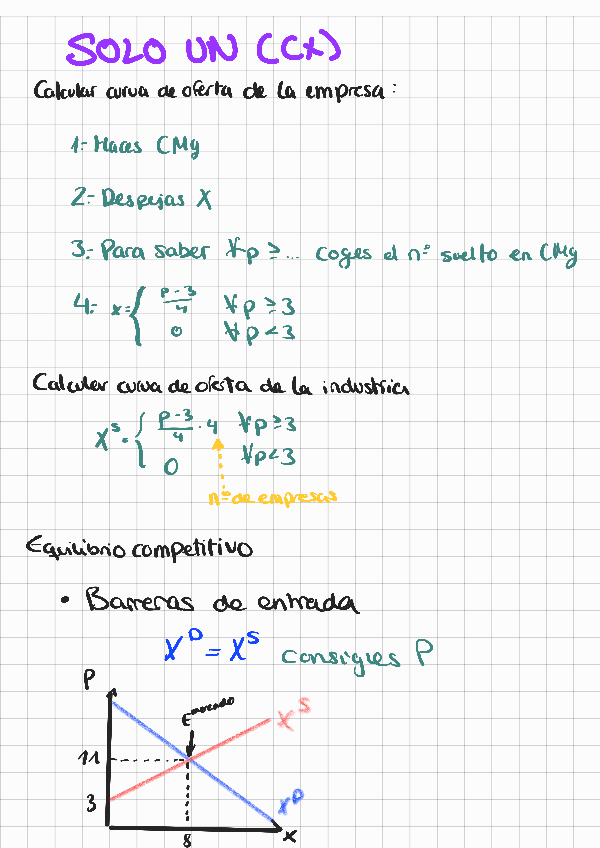 SOLO UN (CX)
Calcular curva de oferta de la empresa:
1.- Haces CMg
2.- Despejas X
3.- Para saber ∀p ≥ ... coges el nº suelto en CMg
4.- x = { (p-3)/4 ∀p ≥ 3
0 ∀p < 3
Calcular curva de oferta de la industria
X^S = { (p-3)/4 · 4 ∀p ≥ 3
0 ∀p < 3
nº de empresas
Equilibrio competitivo
• Barreras de entrada
X^D = X^S consigues P
P
E^mercado
X^S
11
3
X^D
8
X